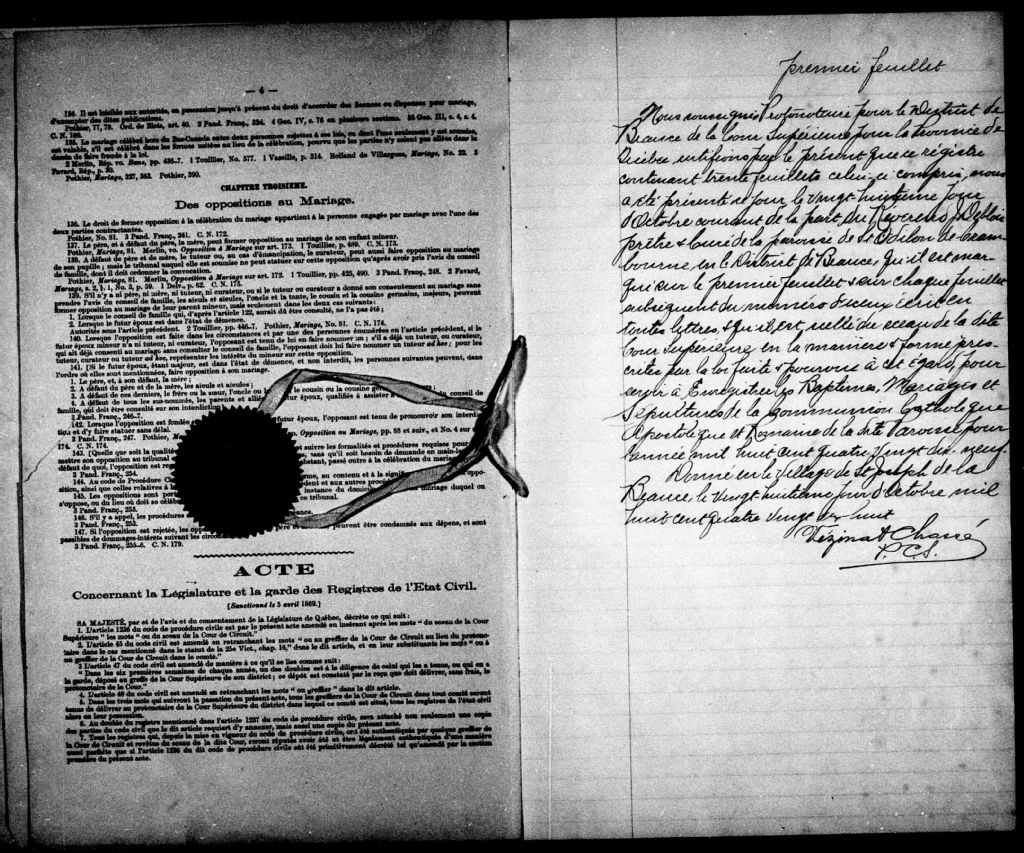 — 4 —
134. Il est loisible aux autorités, en possession jusqu'à présent du droit d'accorder des licences ou dispenses pour mariage,
d'exempter des dites publications.
Pothier, 77, 78. Ord. de Blois, art. 40. 2 Pand. Franç., 234. 4 Geo. IV, c. 76 en plusieurs sections. 35 Geo. III, c. 4, s. 4.
C. N. 169.
135. Le mariage célébré hors du Bas-Canada entre deux personnes sujettes à ses lois, ou dont l'une seulement y est soumise,
est valable, s'il est célébré dans les formes usitées au lieu de la célébration, pourvu que les parties n'y soient pas allées dans le
dessein de faire fraude à la loi.
2 Merlin, Rép. vo. Bans, pp. 436-7. 1 Touillier, No. 577. 1 Vazeille, p. 314. Rolland de Villargues, Mariage, No. 22. 3
Favard, Rép., p. 30.
Pothier, Mariage, 327, 363. Pothier, 390.
CHAPITRE TROISIEME.
Des oppositions au Mariage.
136. Le droit de former opposition à la célébration du mariage appartient à la personne engagée par mariage avec l'une des
deux parties contractantes.
Pothier, No. 81. 3 Pand. Franç., 241. C. N. 172.
137. Le père, et à défaut du père, la mère, peut former opposition au mariage de son enfant mineur.
Pothier, Mariage, 81. Merlin, vo. Opposition à Mariage sur art. 173. 1 Touillier, p. 489. C. N. 173.
138. A défaut de père et de mère, le tuteur ou, au cas d'émancipation, le curateur, peut aussi faire opposition au mariage
de son pupille; mais le tribunal auquel elle est soumise ne peut statuer sur cette opposition qu'après avoir pris l'avis du conseil
de famille, dont il doit ordonner la convocation.
Pothier, Mariage, 81. Merlin, Opposition à Mariage sur art. 172. 1 Touillier, pp. 425, 490. 3 Pand. Franç., 248. 2 Favard,
Mariage, s. 2, § 1, No. 3, p. 59. 1 Delv., p. 62. C. N. 175.
139. S'il n'y a ni père, ni mère, ni tuteur, ni curateur, ou si le tuteur ou curateur a donné son consentement au mariage sans
prendre l'avis du conseil de famille, les aïeuls et aïeules, l'oncle et la tante, le cousin et la cousine germains, majeurs, peuvent
former opposition au mariage de leur parent mineur, mais seulement dans les deux cas suivants:
1. Lorsque le conseil de famille qui, d'après l'article 122, aurait dû être consulté, ne l'a pas été;
2. Lorsque le futur époux est dans l'état de démence.
Autorités sous l'article précédent. 2 Touillier, pp. 446-7. Pothier, Mariage, No. 81. C. N. 174.
140. Lorsque l'opposition est faite dans les circonstances et par une des personnes énumérées en l'article précédent, si le
futur époux mineur n'a ni tuteur, ni curateur, l'opposant est tenu de lui en faire nommer un; s'il a déjà un tuteur, ou curateur,
qui ait déjà consenti au mariage sans consulter le conseil de famille, l'opposant doit lui faire nommer un tuteur ad hoc; pour les
tuteur, curateur ou tuteur ad hoc, représenter les intérêts du mineur sur cette opposition.
141. [Si le futur époux, étant majeur, est dans l'état de démence, et non interdit, les personnes suivantes peuvent, dans
l'ordre où elles sont mentionnées, faire opposition à son mariage.
1. Le père, et, à son défaut, la mère;
2. A défaut du père et de la mère, les aïeuls et aïeules;
3. A défaut de ces derniers, le frère ou la sœur, l'oncle ou le cousin ou la cousine
4. A défaut de tous les sus-nommés, les parents et alliés futur époux, qualifiés à assister conseil de
famille, qui doit être consulté sur son interdiction
3 Pand. Franç., 246-7.
142. Lorsque l'opposition est fondée futur époux, l'opposant est tenu de promouvoir son interdic-
tion et d'y faire statuer sans délai.
3 Pand. Franç., 247. Pothier, Opposition au Mariage, pp. 88 et suiv., et No. 4 sur
174. C. N. 174.
143. [Quelle que soit la qualité suivre les formalités et procédures requises pour
mettre son opposition au tribunal sans qu'il soit besoin de demande en main-le
défaut de quoi, l'opposition est passé outre à la célébration du mariage
3 Pand. Franç., 254.
144. Au code de Procédure au contenu et à la oppo-
sition, ainsi que celles relatives à et aux autres
145. Les oppositions sont instance du mariage duquel on
s'oppose, ou du lieu où doit se tribunal.
3 Pand. Franç., 253.
146. S'il y a appel, les procédures
3 Pand. Franç., 253.
147. Si l'opposition est rejetée, les peuvent être condamnés aux dépens, et sont
passibles de dommages-intérêts suivant les
3 Pand. Franç., 255-6. C. N. 179.
ACTE
Concernant la Législature et la garde des Registres de l'Etat Civil.
(Sanctionné le 5 avril 1869.)
SA MAJESTÉ, par et de l'avis et du consentement de la Législature de Québec, décrète ce qui suit:
1. L'article 1236 du code de procédure civile est par le présent acte amendé en insérant après les mots "du sceau de la Cour
Supérieure" les mots "ou du sceau de la Cour de Circuit."
2. L'article 45 du code civil est amendé en retranchant les mots "ou au greffier de la Cour de Circuit au lieu du protono-
taire dans le cas mentionné dans le statut de la 25e Vict., chap. 16," dans le dit article, et en leur substituant les mots "ou à
un greffier de la Cour de Circuit dans le comté."
3 L'article 47 du code civil est amendé de manière à ce qu'il se lise comme suit:
"Dans les six premières semaines de chaque année, un des doubles est à la diligence de celui qui les a tenus, ou qui en a
la garde, déposé au greffe de la Cour Supérieure de son district; ce dépôt est constaté par le reçu que doit délivrer, sans frais, le
protonotaire de la Cour."
4. L'article 48 du code civil est amendé en retranchant les mots "ou greffier" dans le dit article.
5. Dans les trois mois qui suivront la passation du présent acte, tous les greffiers de la Cour de Circuit dans tous comté seront
tenus de délivrer au protonotaire de la Cour Supérieure du district dans lequel ce comté est situé, tous les registres de l'état civil
alors en leur possession.
6. Au double du registre mentionné dans l'article 1237 du code de procédure civile, sera attaché non seulement une copie
des parties du code civil que le dit article requiert d'y annexer, mais aussi une copie du présent acte.
7. Tous les registres qui, depuis la mise en vigueur du code de procédure civile, ont été authentiqués par quelque greffier de
la Cour de Circuit et revêtus du sceau de la dite Cour, seront réputés avoir été et être légalement authentiqués d'une manière
aussi parfaite que si l'article 1236 du dit code de procédure civile eût été primitivement décrété tel qu'amendé par la section
première du présent acte.
premier feuillet
Nous soussignés Protonotaire pour le District de
Beauce de la Cour Supérieure pour la Province de
Québec certifions par le présent que ce régistre
contenant trente feuillets celui-ci compris, nous
a été présenté ce jour le vingt huitième jour
d'Octobre courant de la part du Révérend
prêtre & Curé de la paroisse de St Odilon de Cran-
bourne en le District de Beauce, qu'il est mar-
qué sur le premier feuillet & sur chaque feuillet
subséquent du numéro d'iceux écrit en
toutes lettres, & qu'il est scellé du sceau de la dite
Cour Supérieure, en la manière & forme pres-
crites par la loi faite & pourvue à cet égard, pour
servir à Enregistrer les Baptêmes, Mariages et
Sépultures de la Communion Catholique
Apostolique et Romaine de la dite Paroisse pour
l'année mil huit cent quatre vingt dix-neuf.
Donné en le Village de St Joseph de la
Beauce, le vingt huitième jour d'Octobre mil
huit cent quatre vingt dix huit
Vézina & Chassé
P.C.S.